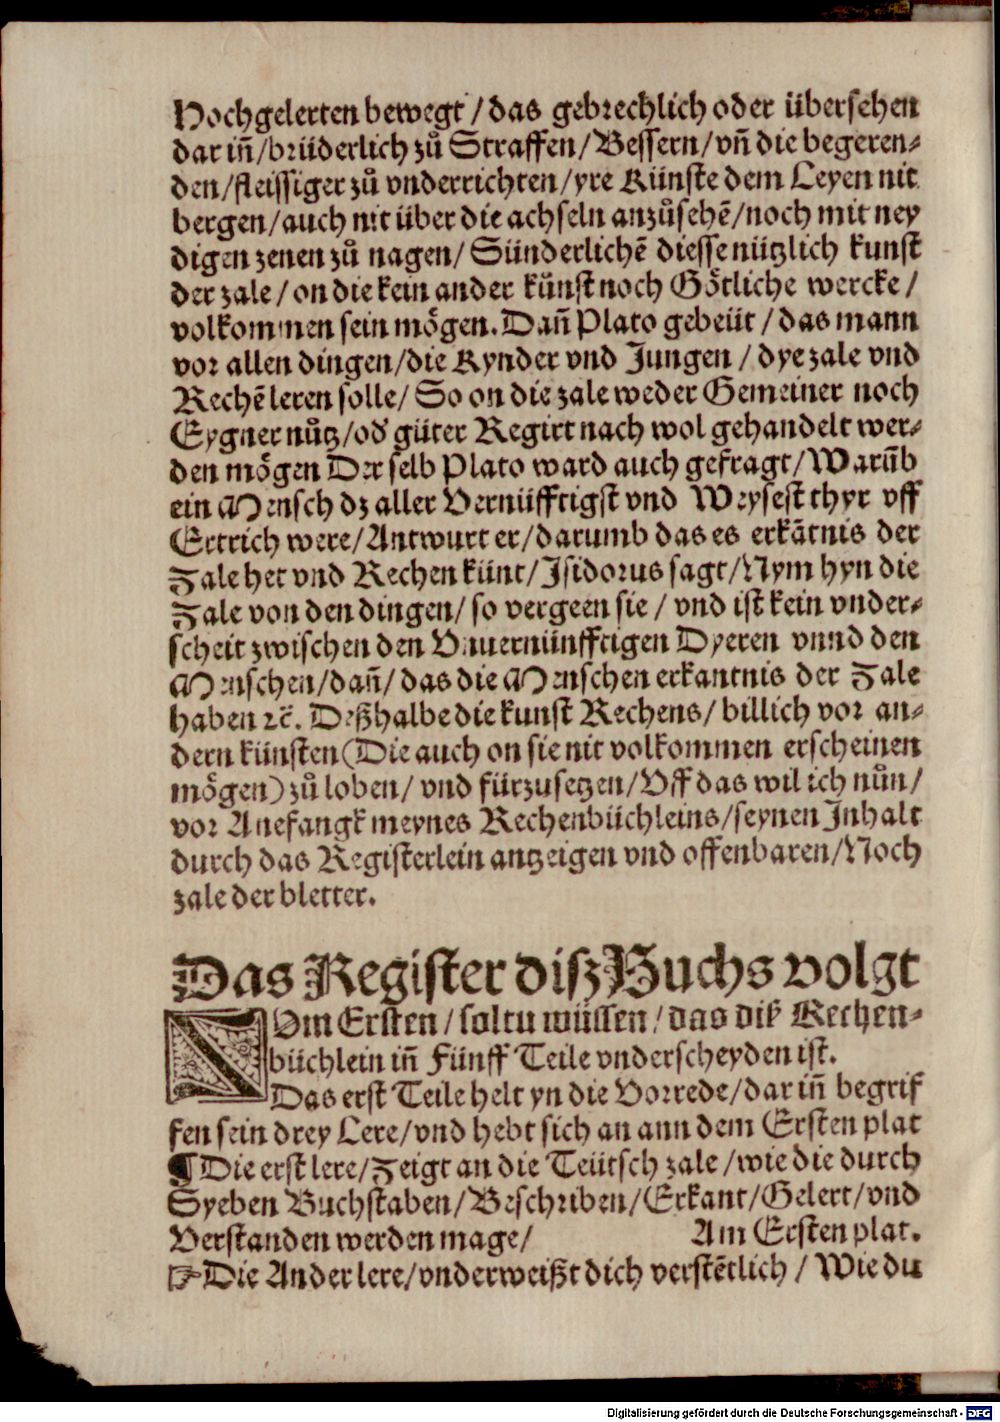 Hochgelerten bewegt / das gebrechlich oder übersehen
dar iñ/brüderlich zů Straffen/Bessern/vñ die begeren⸗
den/fleissiger zů vnderrichten/yre Künste dem Leyen nit
bergen/auch nit über die achseln anzůsehē/noch mit ney
digen zenen zů nagen/ Sünderlichē diesse nützlich kunst
der zale / on die kein ander kůnst noch Götliche wercke /
volkommen sein mögen. Dañ Plato gebeüt / das mann
vor allen dingen/die Kynder vnd Jungen / dye zale vnd
Rechē leren solle/ So on die zale weder Gemeiner noch
Eygner nůtz/oď gůter Regirt nach wol gehandelt wer⸗
den mögen Der selb Plato ward auch gefragt/Warūb
ein Mensch dz aller Vernüfftigst vnd Weysest thyr vff
Ertrich were/Antwurt er/darumb das es erkātnis der
Zale het vnd Rechen künt/Isidorus sagt/Nym hyn die
Zale von den dingen/ so vergeen sie / vnd ist kein vnder⸗
scheit zwischen den Vnuernünfftigen Dyeren vnnd den
Menschen/dañ/das die Menschen erkantnis der Zale
haben ꝛc̄. Deßhalbe die kunst Rechens/ billich vor an⸗
dern künsten(Die auch on sie nit volkommen erscheinen
mögen)zů loben/ vnd fürzusetzen/Vff das wil ich nůn/
vor Anefangk meynes Rechenbüchleins/seynen Inhalt
durch das Registerlein antzeigen vnd offenbaren/Noch
zale der bletter.
Das Register disz Buchs volgt
ZOm Ersten/soltu wüssen/das diß Rechen⸗
büchlein iñ Fünff Teile vnderscheyden ist.
Das erst Teile helt yn die Vorrede/dar iñ begrif
fen sein drey Lere/vnd hebt sich an ann dem Ersten plat
¶ Die erst lere/Zeigt an die Teütsch zale/wie die durch
Syeben Buchstaben/Beschriben/Erkant/Gelert/vnd
Verstanden werden mage/ Am Ersten plat.
☞ Die Ander lere/vnderweißt dich verstētlich / Wie du
Digitalisierung gefördert durch die Deutsche Forschungsgemeinschaft - DFG